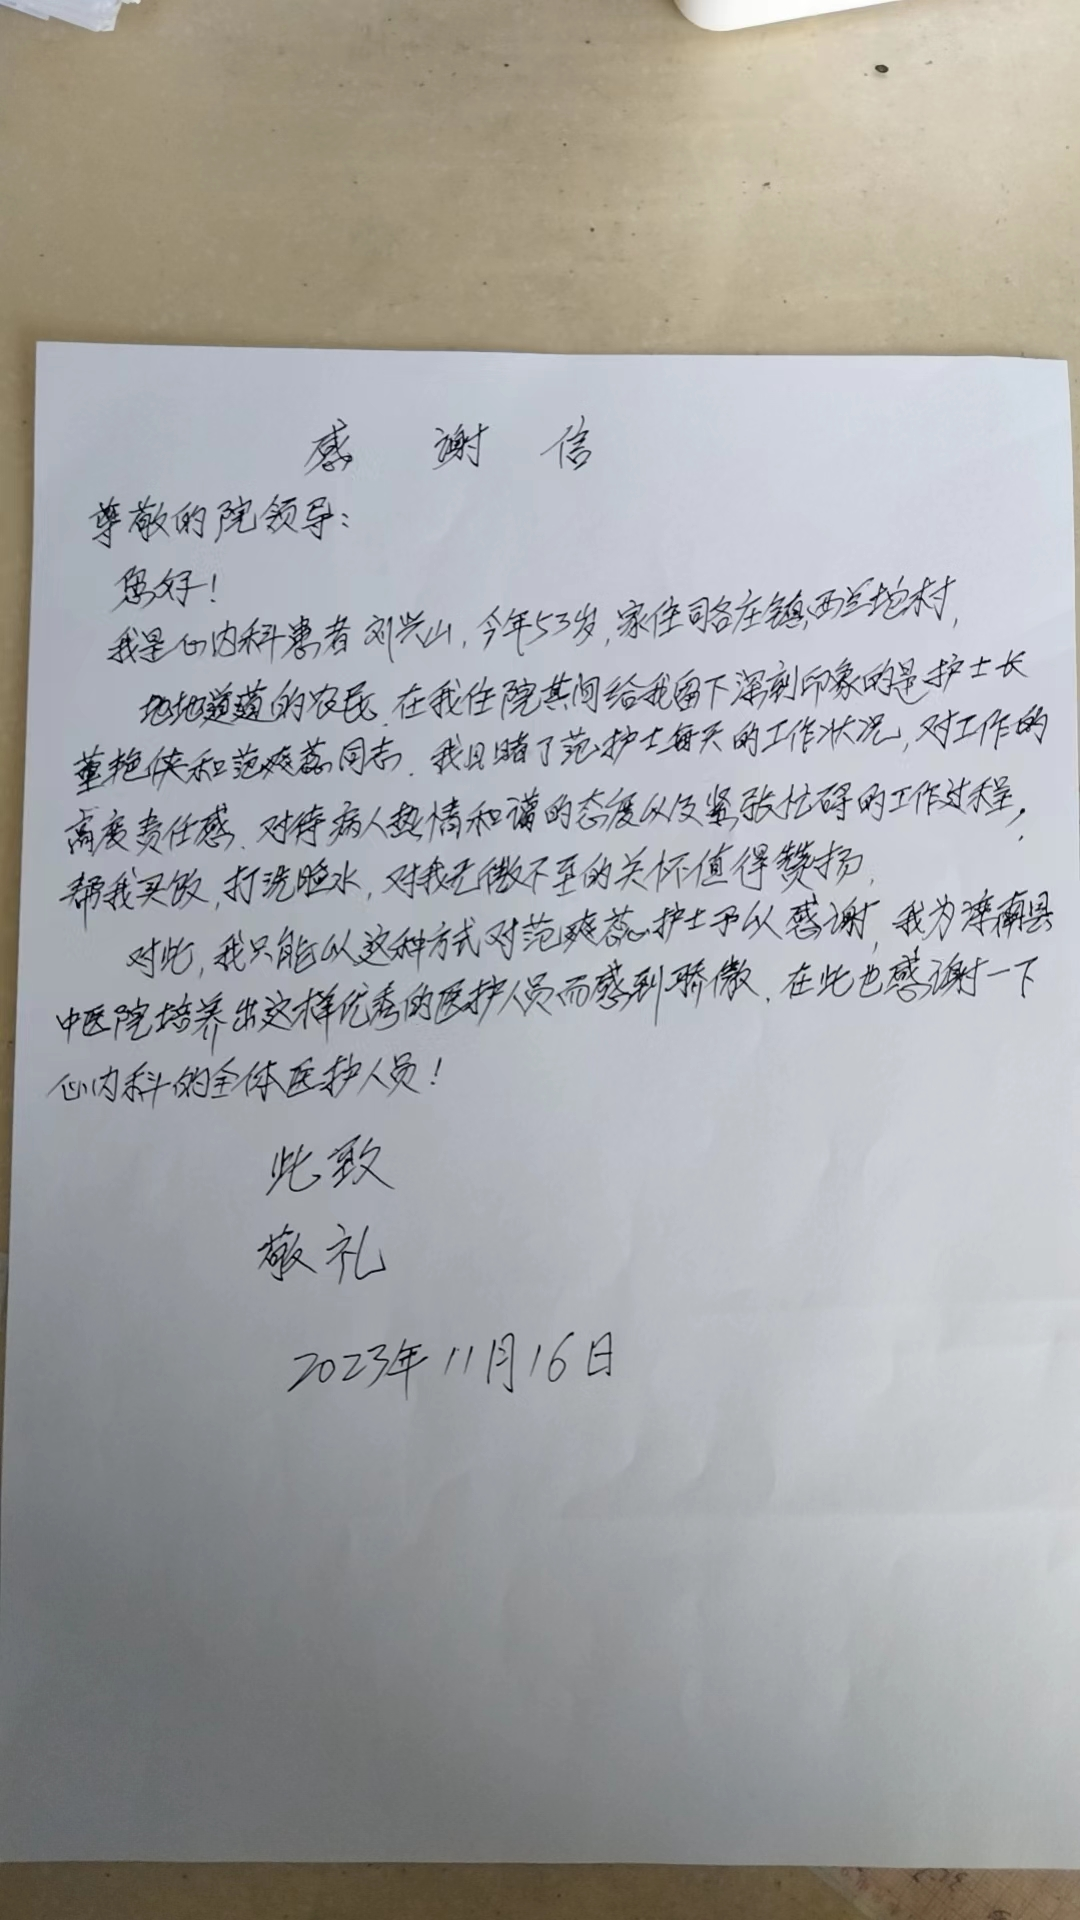 感 谢 信
尊敬的院领导：
您好！
我是心内科患者刘兴山，今年53岁，家住司各庄镇，西兰坨村，
地地道道的农民．在我住院其间给我留下深刻印象的是护士长
董艳侠和范爽蕊同志．我目睹了范护士每天的工作状况，对工作的
高度责任感．对待病人热情和蔼的态度以及紧张忙碌的工作过程，
帮我买饭，打洗脸水，对我无微不至的关怀值得赞扬．
对此，我只能以这种方式对范爽蕊护士予以感谢，我为滦南县
中医院培养出这样优秀的医护人员而感到骄傲．在此也感谢一下
心内科的全体医护人员！
此致
敬礼
2023年11月16日